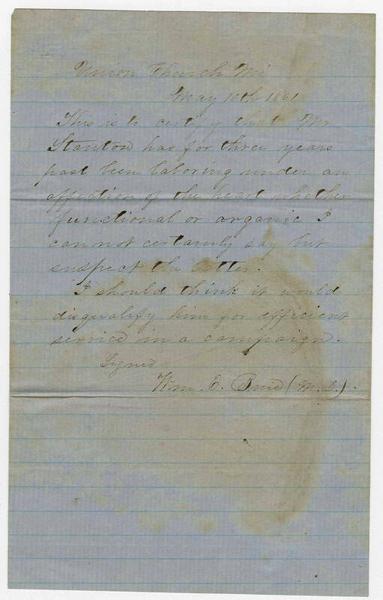 Union Church Mi
May 10th 1861
This is to certify that Mr
Stanton has for three years
past been laboring under an
affection of the heart whether
functional or organic I
cannot certainly say but
suspect the latter.
I should think it would
disqualify him for efficient
service in a campaign.
Signed
Wm. E. (M.D.).